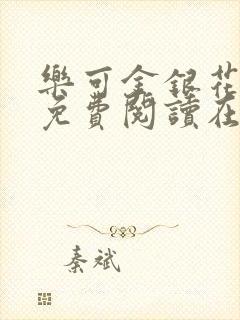 樂可金銀花
免費閱讀在
秦斌